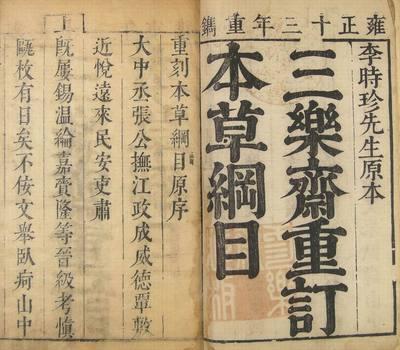 雍正十三年重鐫
李時珍先生原本
三樂齋重訂
本草綱目
重刻本草綱目原序
大中丞張公撫江政成威德覃敷
近悅遠來民安吏肅
上既屢錫溫綸嘉賚隆等晉級考慎
甌枚有日矣不佞文舉臥痾山中